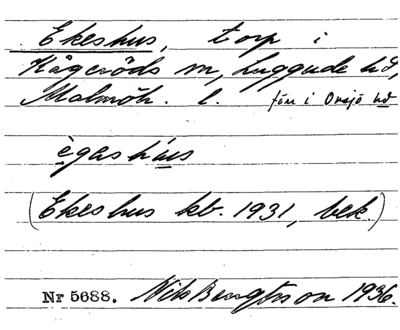 Ekeshus, torp i
Kågeröds sn, Luggude hd,
Malmöh. l. förr i Onsjö hd
ègashús
(Ekeshus kb. 1931, bek.)
Nr 5688. Nils Bengtsson 1936.